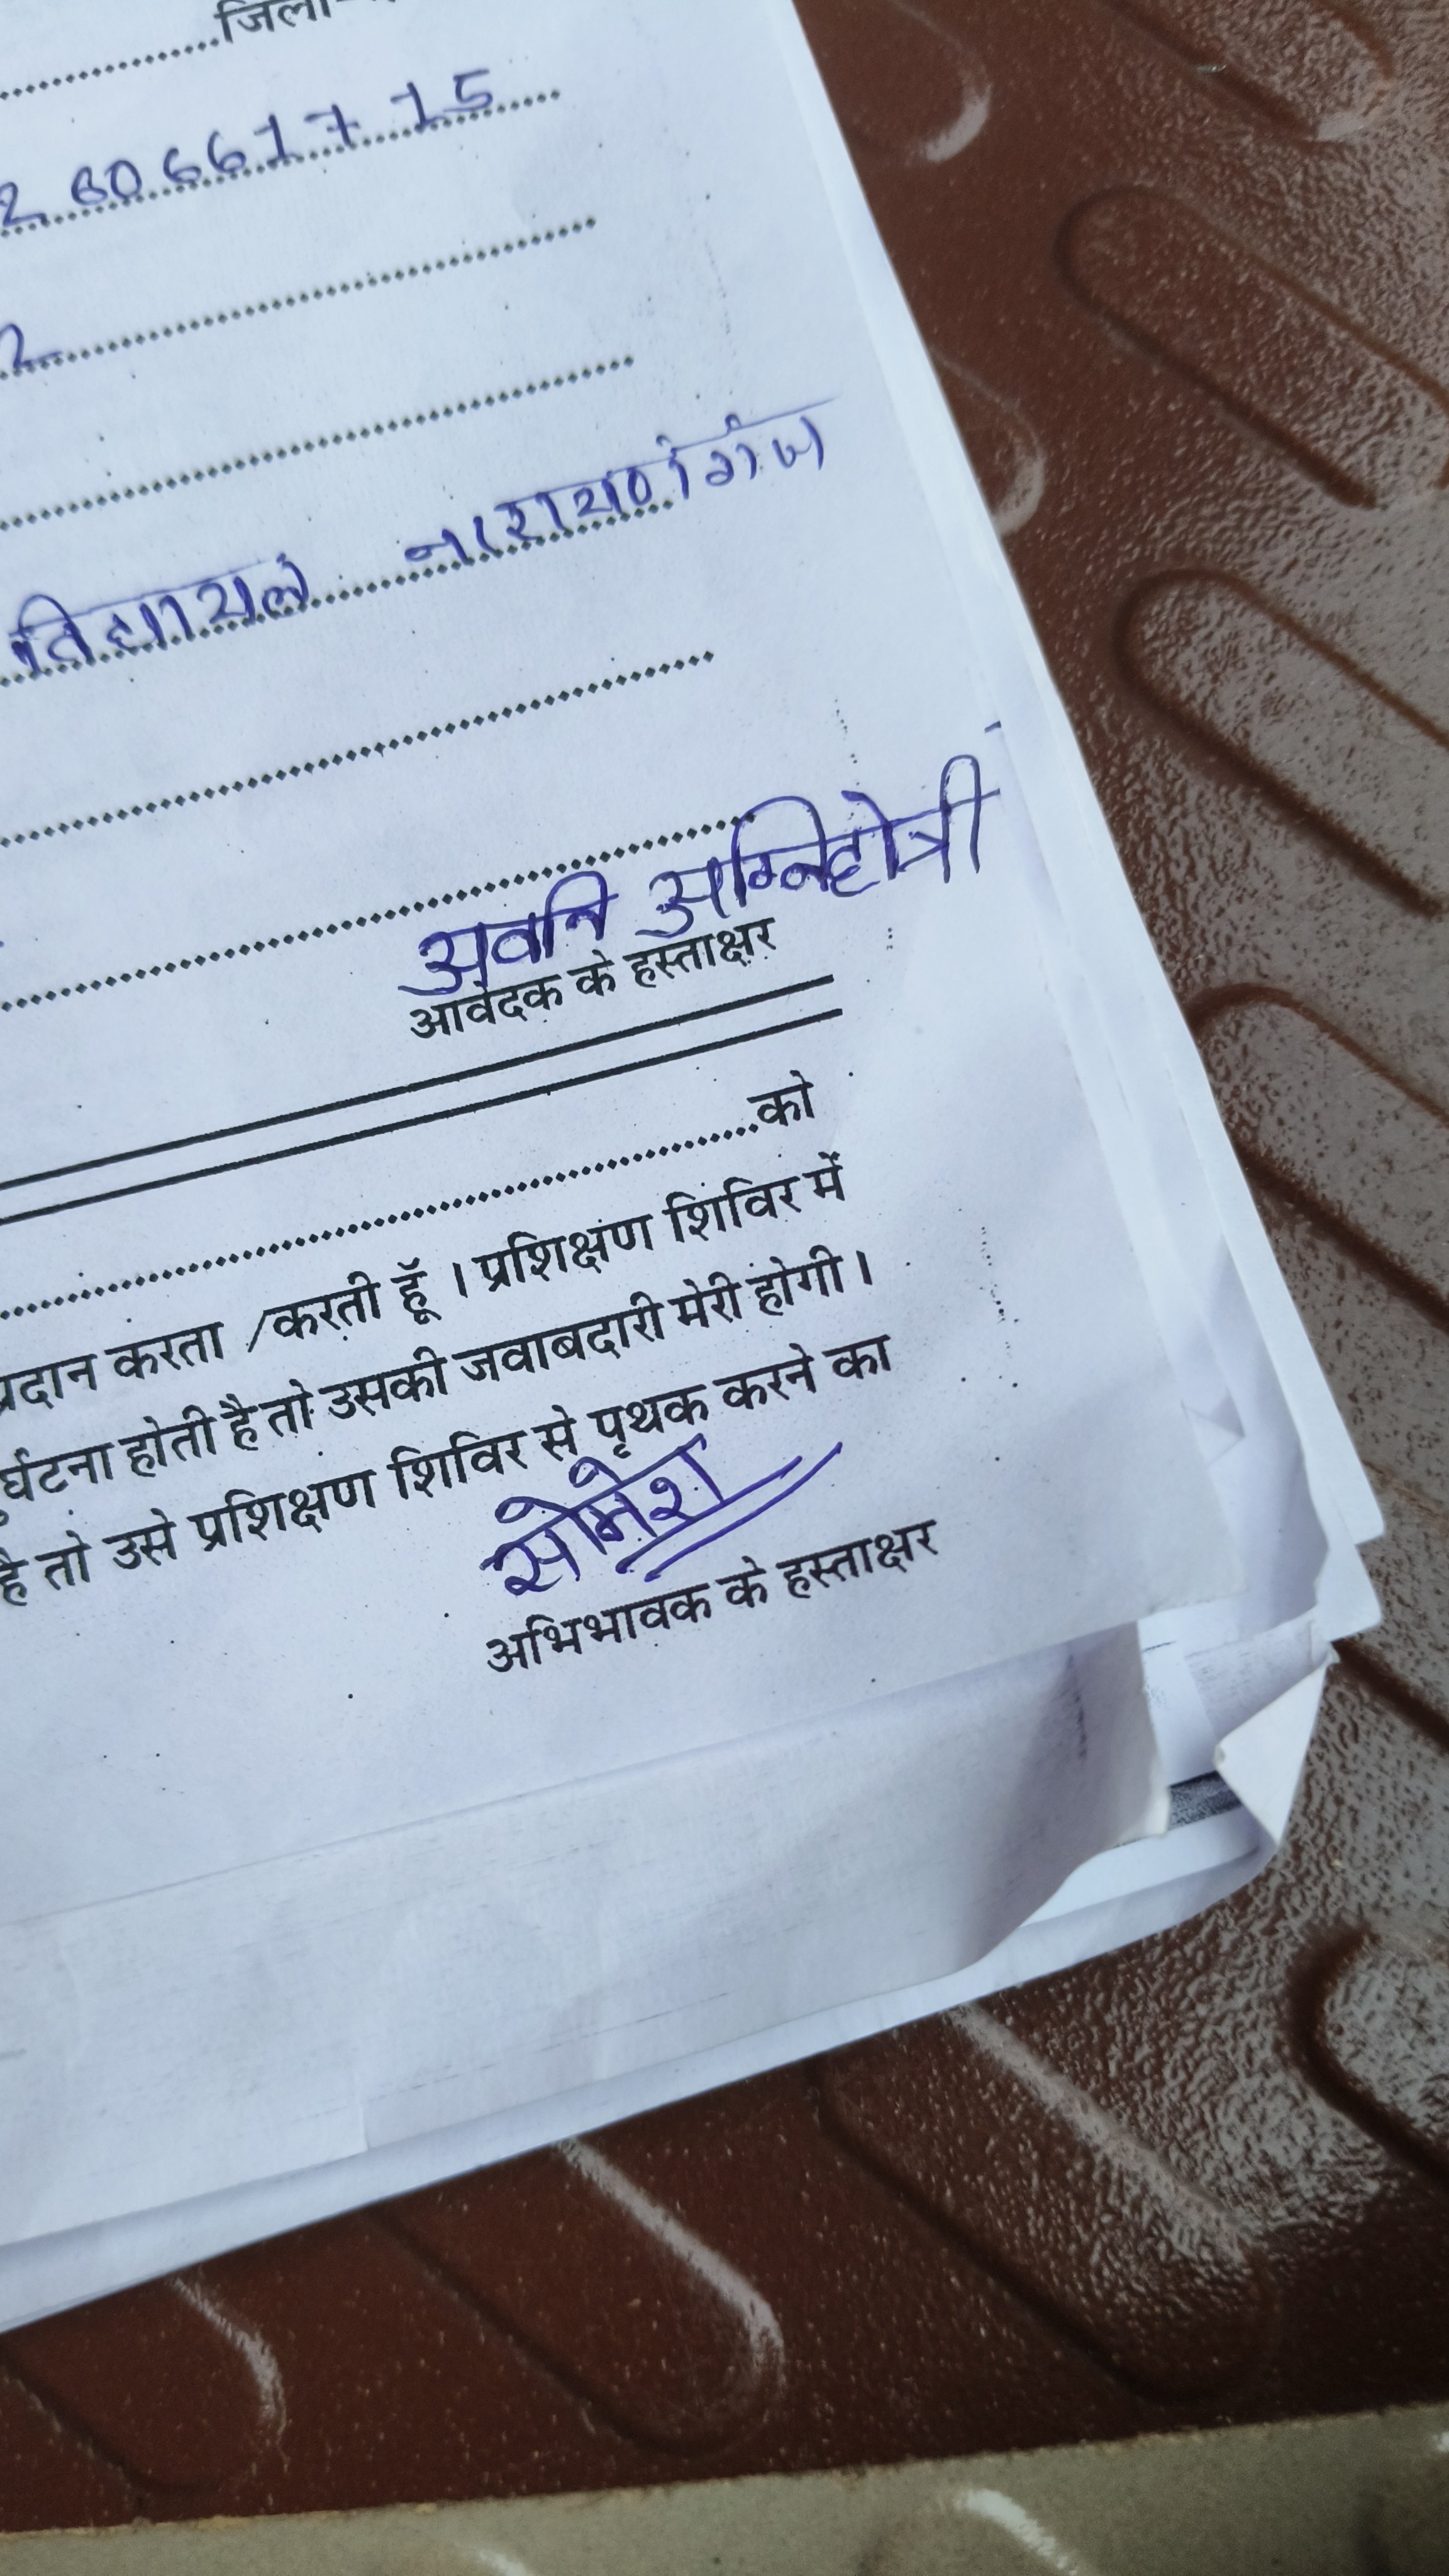 जिला
2 606617715
2
विद्यायल नारायणगंज
अवनि अग्निहोत्री
आवेदक के हस्ताक्षर
को
प्रदान करता /करती हूँ। प्रशिक्षण शिविर में
दुर्घटना होती है तो उसकी जवाबदारी मेरी होगी।
है तो उसे प्रशिक्षण शिविर से पृथक करने का
सोमेश
अभिभावक के हस्ताक्षर